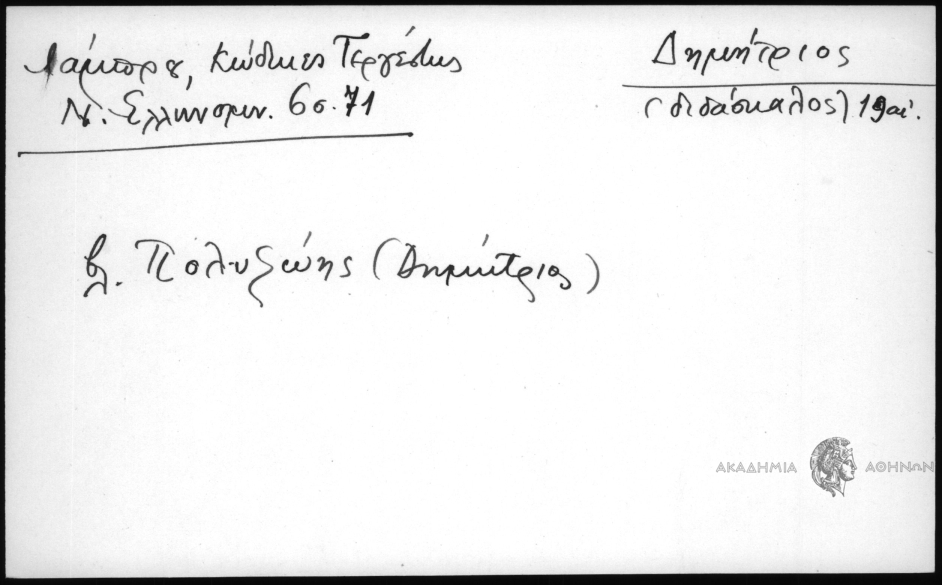 Λάμπρου, Κώδικες Τεργέστης
Ν. Ελληνομν. 6 σ. 71
Δημήτριος
(διδάσκαλος) 19 αἰ.
βλ. Πολυζώης (Δημήτριος)
ΑΚΑΔΗΜΙΑ ΑΘΗΝΩΝ